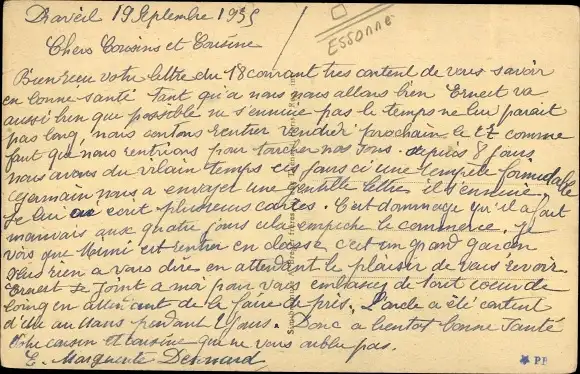 Draveil 19 Septembre 1935
ESSONNE
Chers Cousins et Cousine
Bien reçu votre lettre du 18 courant tres content de vous savoir
en bonne santé tant qu'a nous nous allons bien Ernest va
aussi bien que possible ne s'ennuie pas le temps ne lui parait
pas long, nous contons rentrer vendredi prochain le 27 comme
faut que nous rentrions pour toucher nos sous. depuis 8 jours
nous avons du vilain temps ces jours ci une tempete formidable
Germain nous a envoyer une gentille lettre il s'ennuie.
Je lui ai ecrit plusieurs cartes. C'est dommage qu'il a fait
mauvais aux quatre jours cela empeche le commerce. Je
vois que est rentrer en classe c'est un grand garcon
Plus rien a vous dire en attendent le plaisir de vous revoir
Ernest se joint a moi pour vous embrasser de tout coeur de
loing en attendant de la faire de près. L'oncle a été content
d'etre au Mans pendant 2 jours. Donc a bientot bonne santé
Votre cousin et cousine qui ne vous oublie pas.
E. Marguerite
PR